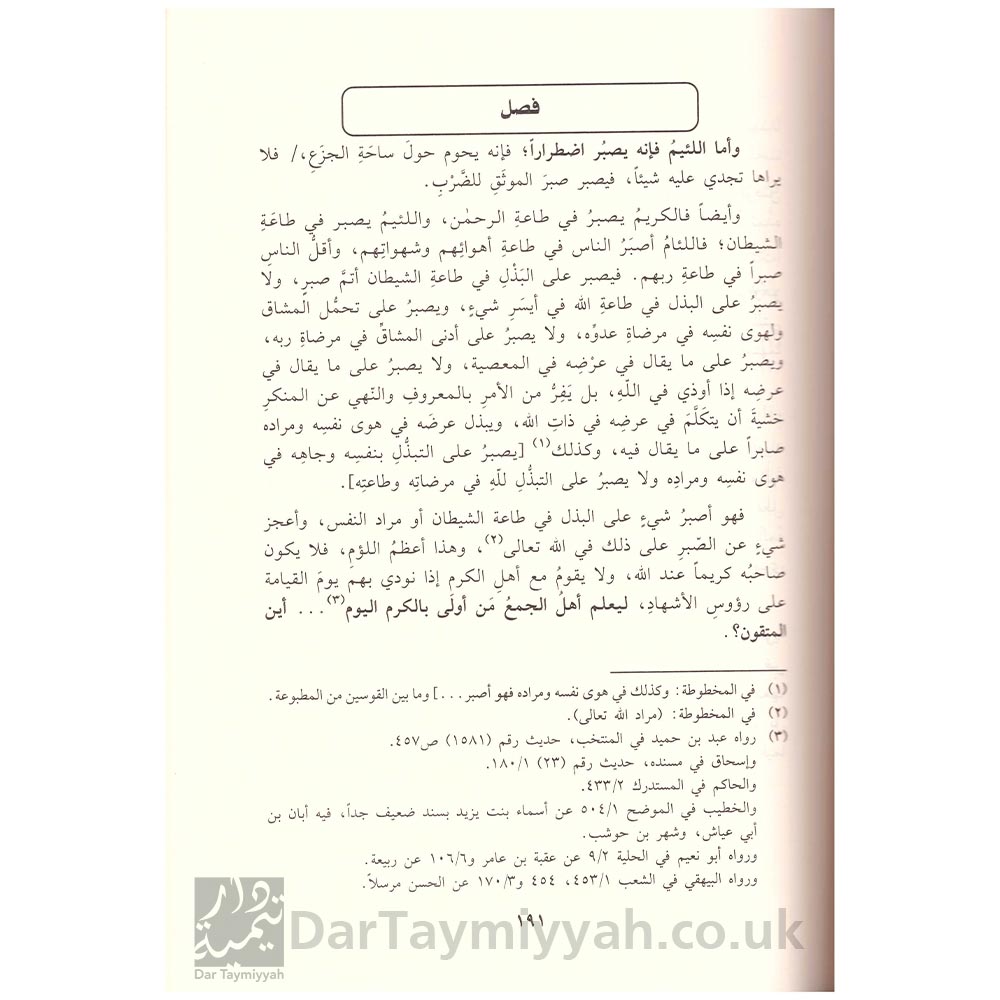 فصل
وأما اللئيمُ فإنه يصبُر اضطراراً؛ فإنه يحوم حولَ ساحَةِ الجزَعِ،/ فلا
يراها تجدي عليه شيئاً، فيصبر صبرَ الموثَقِ للضَّرْبِ.
وأيضاً فالكريمُ يصبرُ في طاعةِ الرحمٰن، واللئيمُ يصبر في طاعَةِ
الشيطان؛ فاللئامُ أصبَرُ الناس في طاعةِ أهوائِهم وشهواتِهم، وأقلُّ الناسِ
صبراً في طاعةِ ربهم. فيصبر على البَذْلِ في طاعةِ الشيطان أتمَّ صبرٍ، ولَا
يصبرُ على البذل في طاعةِ الله في أيسَرِ شيءٍ، ويصبرُ على تحمُّل المشاق
ولهوى نفسِه في مرضاةِ عدوِّه، ولا يصبرُ على أدنى المشاقِّ في مرضاةِ ربه،
ويصبرُ على ما يقال في عرْضِه في المعصية، ولا يصبرُ على ما يقال في
عرضِه إذا أوذي في اللّهِ، بل يَفِرُّ من الأمرِ بالمعروفِ والنّهي عن المنكرِ
خشيةَ أن يتكَلَّمَ في عرضِه في ذاتِ الله، ويبذل عرضَه في هوى نفسِه ومراده
صابراً على ما يقال فيه، وكذلك(١) [يصبرُ على التبذُّلِ بنفسِه وجاهِه في
هوى نفسِه ومرادِه ولا يصبرُ على التبذُّلِ للّهِ في مرضاتِه وطاعتِه].
فهو أصبرُ شيءٍ على البذل في طاعة الشيطان أو مراد النفس، وأعجز
شيءٍ عن الصّبرِ على ذلك في الله تعالى(٢)، وهذا أعظمُ اللؤمِ، فلا يكون
صاحبُه كريماً عند الله، ولا يقومُ مع أهلِ الكرم إذا نودي بهم يومَ القيامة
على رؤوسِ الأشهادِ، ليعلم أهلُ الجمعُ مَن أولَى بالكرم اليوم(٣)... أين
المتقون؟.
(١) في المخطوطة: وكذلك في هوى نفسه ومراده فهو أصبر...] وما بين القوسين من المطبوعة.
(٢) في المخطوطة: (مراد الله تعالى).
(٣) رواه عبد بن حميد في المنتخب، حديث رقم (١٥٨١) ص٤٥٧.
وإسحاق في مسنده، حديث رقم (٢٣) ١٨٠/١.
والحاكم في المستدرك ٤٣٣/٢.
والخطيب في الموضح ٥٠٤/١ عن أسماء بنت يزيد بسند ضعيف جداً، فيه أبان بن
أبي عياش، وشهر بن حوشب.
ورواه أبو نعيم في الحلية ٩/٢ عن عقبة بن عامر و١٠٦/٦ عن ربيعة.
ورواه البيهقي في الشعب ٤٥٣/١، ٤٥٤ و١٧٠/٣ عن الحسن مرسلاً.
١٩١
دار تيمية
Dar Taymiyyah
DarTaymiyyah.co.uk